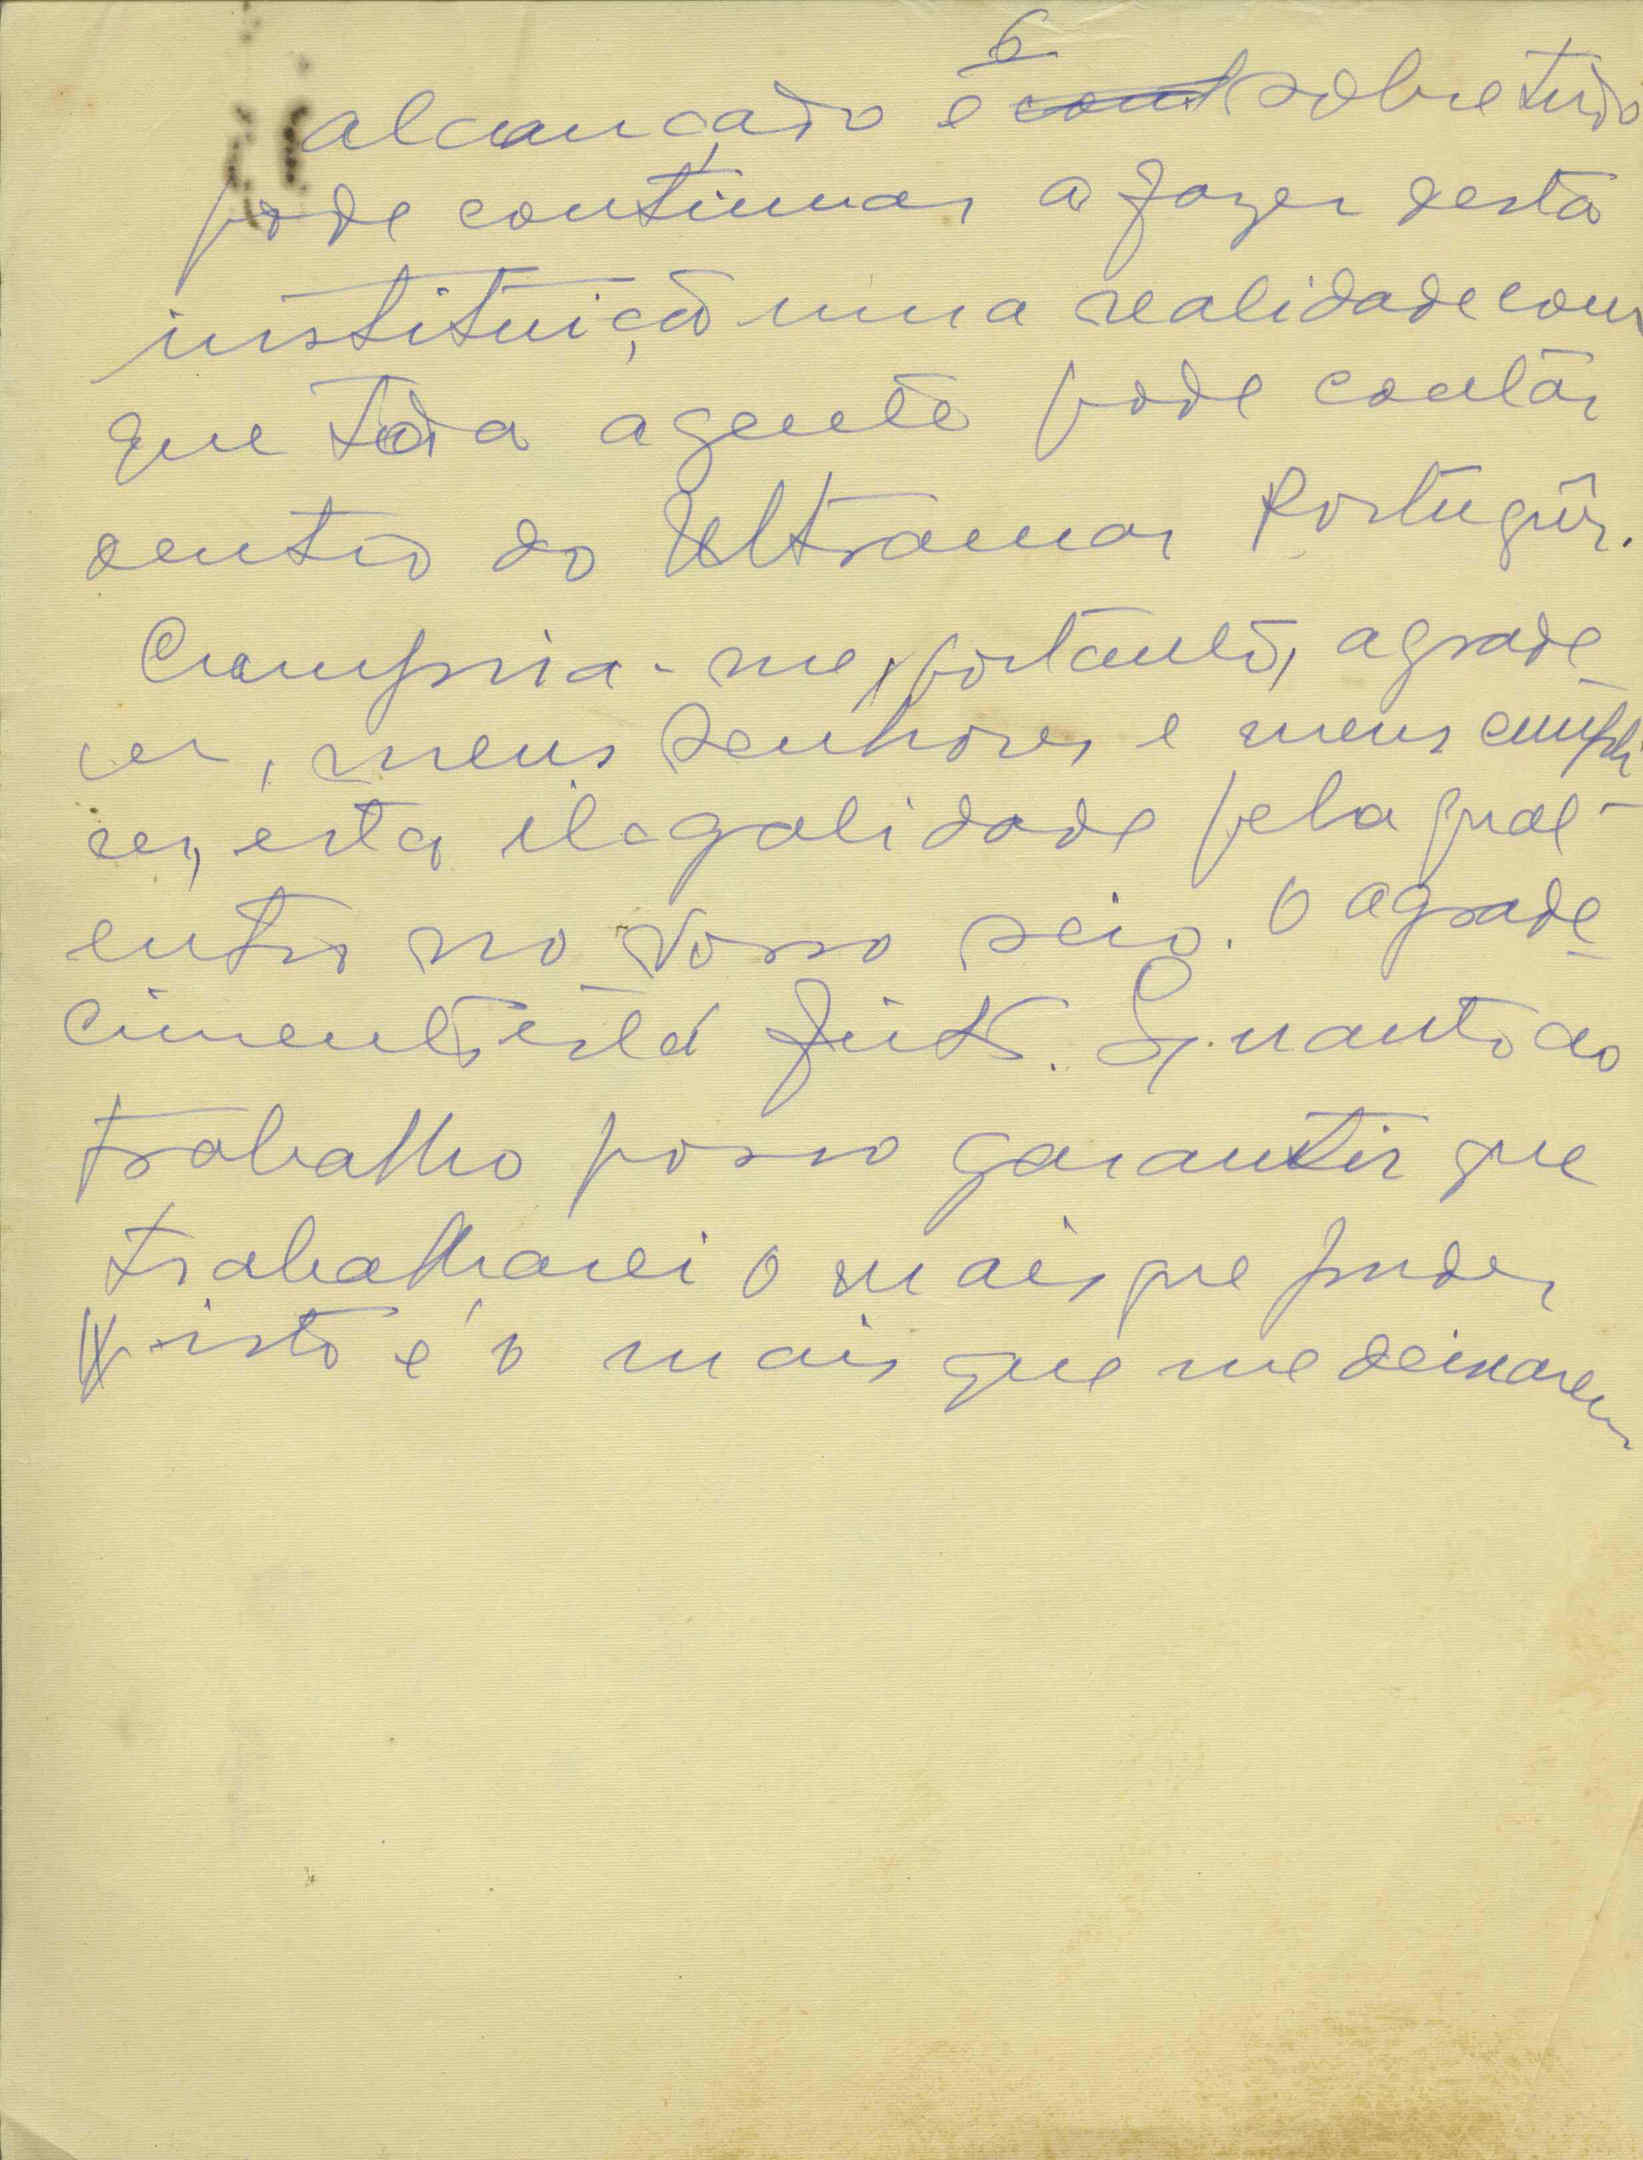 6
alcançado e sobretudo
pode continuar a fazer desta
instituição uma realidade com
que toda a gente pode contar
dentro do Ultramar Português.
Cumpria-me, portanto, agrade
cer, meus Senhores e meus cúmpli
ces, esta ilegalidade pela qual
entro no vosso seio. O agrade
cimento está feito. Quanto ao
trabalho posso garantir que
trabalharei o mais que puder
isto é o mais que me deixarem